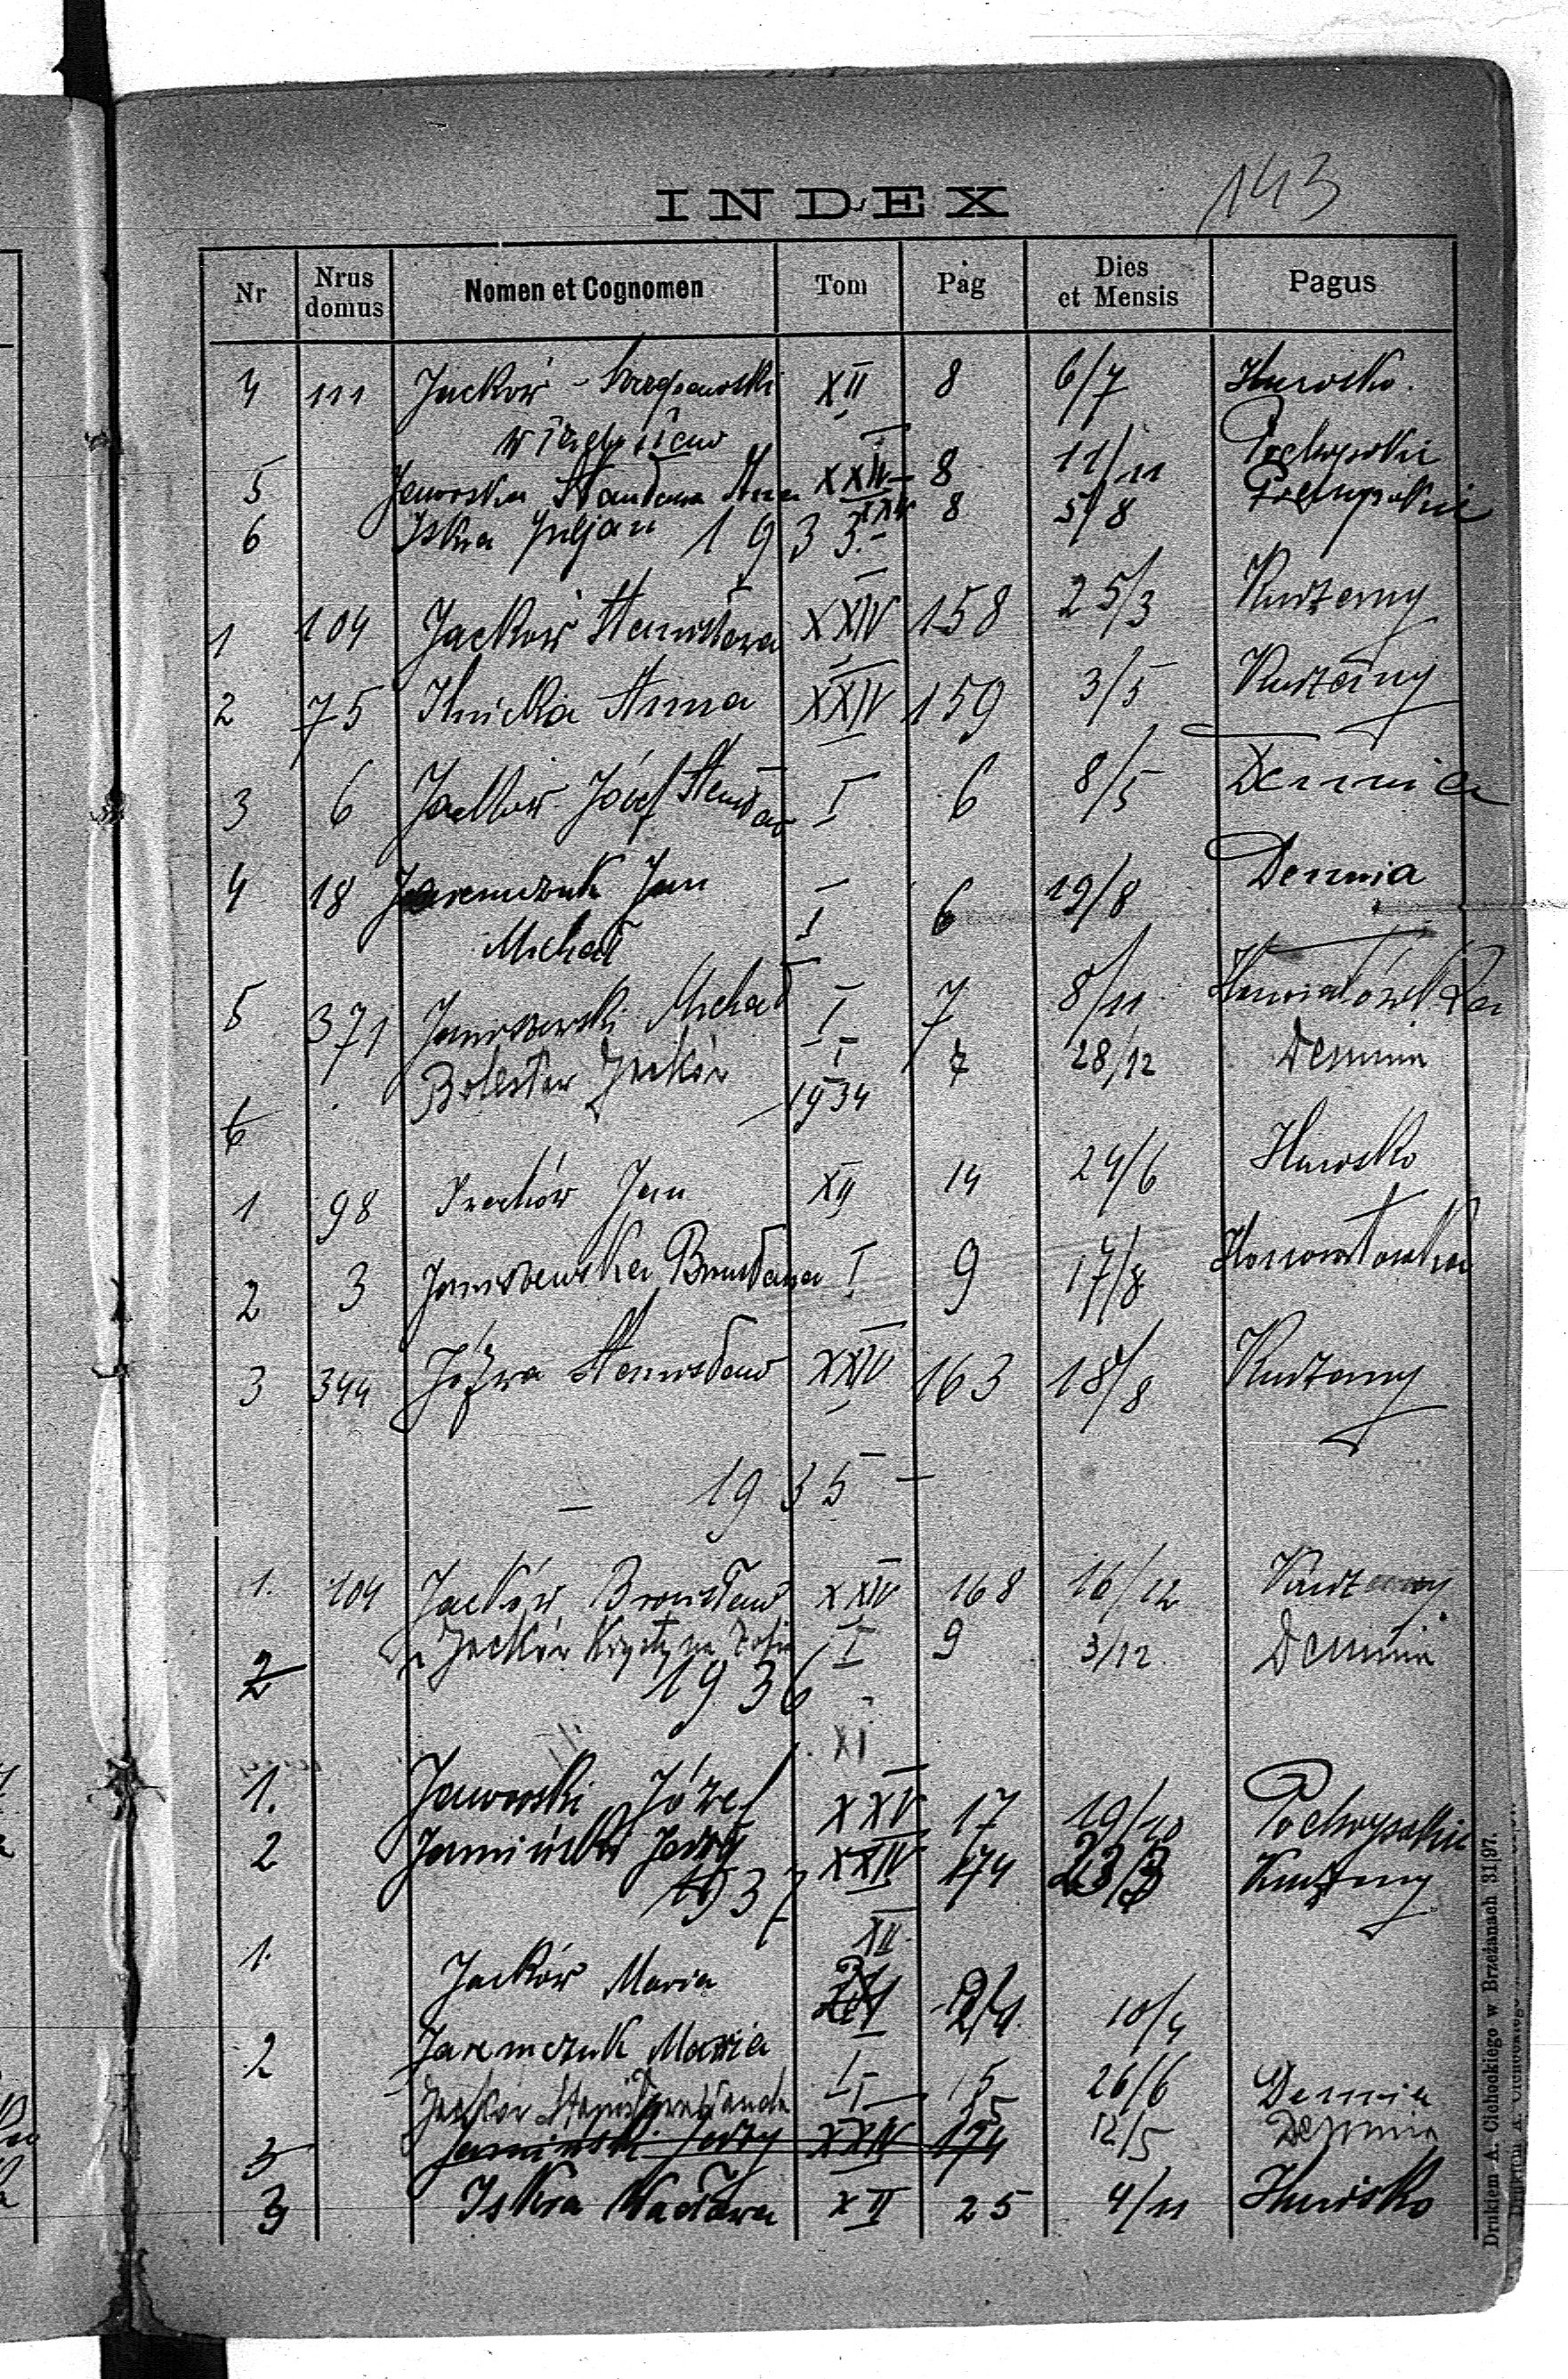 143
INDEX
Nr Nrus domus Nomen et Cognomen Tom Pag Dies et Mensis Pagus
4 111 Jacków - XII 8 6/7 Huwsko.
5 Jaworska Anna XXIV 8 11/11
6 Iskra Juljan 8 5/8
1933.-
1 104 Jacków Stanisława XXIV 158 25/3 Kurzany
2 75 Ilnicka Anna XXIV 159 3/5 Kurzany
3 6 Jacków Józef Stanisław I 6 8/5 Demnia
4 18 Jaremczuk Jan I 6 19/8 Demnia
Michał
5 371 Janiszewski Michał I 7 8/11
6 Bolesław Jacków I 7 28/12 Demnia
1934
1 98 Jan XII 14 24/6 Huwsko
2 3 Janiszewska Bronisława I 9 17/8
3 344 Józwa Stanisław XXIV 163 18/8 Kurzany
- 1935 -
1. 104 Jacków Bronisław XXIV 168 16/12 Kurzany
2 Jacków Krystyna Zofia I 9 3/12 Demnia
1936
XI
1. Jaworski Józef XXV 17 19/10
2 Jamiński Jerzy XXIV 174 23/3 Kurzany
1937
XII
1. Jacków Maria 10/4
2 Jaremczuk Maria I 15 26/6 Demnia
Jacków I 15 12/5 Demnia
3 Jamiński Jerzy XXIV 174
3 Iskra Wacława XII 25 4/11 Huwisko
Drukiem A. Cichockiego w Brzeżanach 31|97.